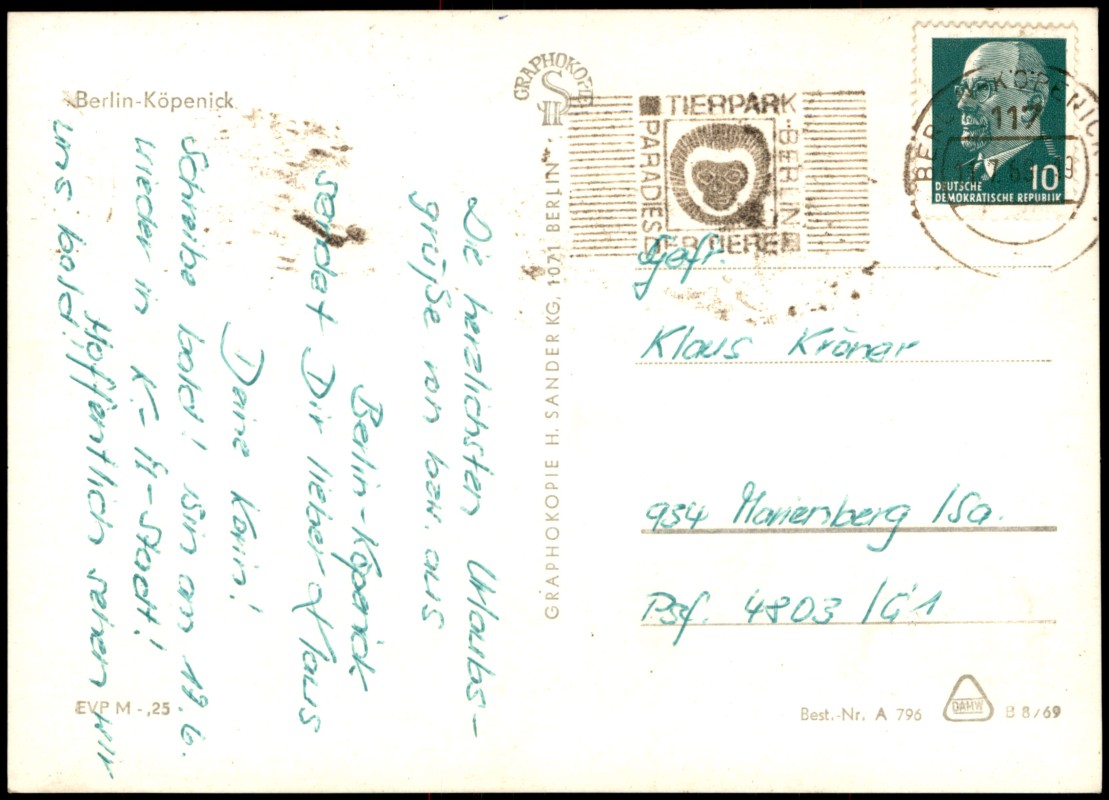 Berlin-Köpenick
Die herzlichsten Urlaubs-
grüße von bzw. aus
Berlin-Köpenick
sendet Dir lieber Klaus
Deine Karin!
Schreibe bald! Bin am 19.6.
wieder in K.-M-Stadt!
Hoffentlich sehen wir
uns bald!
EVP M -,25
GRAPHOKOPIE H. SANDER KG, 1071 BERLIN
GRAPHOKOPIE
HS
TIERPARK
BERLIN
PARADIES
DER TIERE
BERLIN-KÖPENICK
117
DEUTSCHE
DEMOKRATISCHE REPUBLIK
10
Gefr.
Klaus Kröner
934 Marienberg /Sa.
Psf. 4803 /G1
Best.-Nr. A 796
DAMW
B 8/69